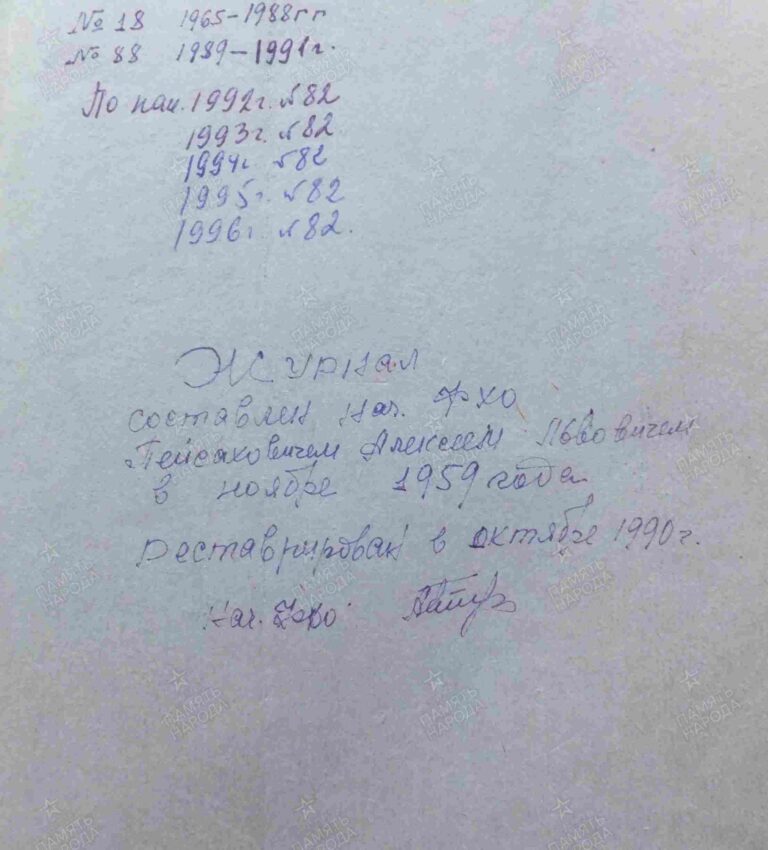 № 18 1965-1988гг
№ 88 1989-1991г.
По 1992г. №82
1993г. №82
1994г. №82
1995г. №82
1996г. №82.
Журнал
составлен Нач. ФХО
Пейсаховичем Алексеем Львовичем
в ноябре 1959 года
Реставрирован в октябре 1990г.
Нач. ФХО
ПАМЯТЬ
НАРОДА